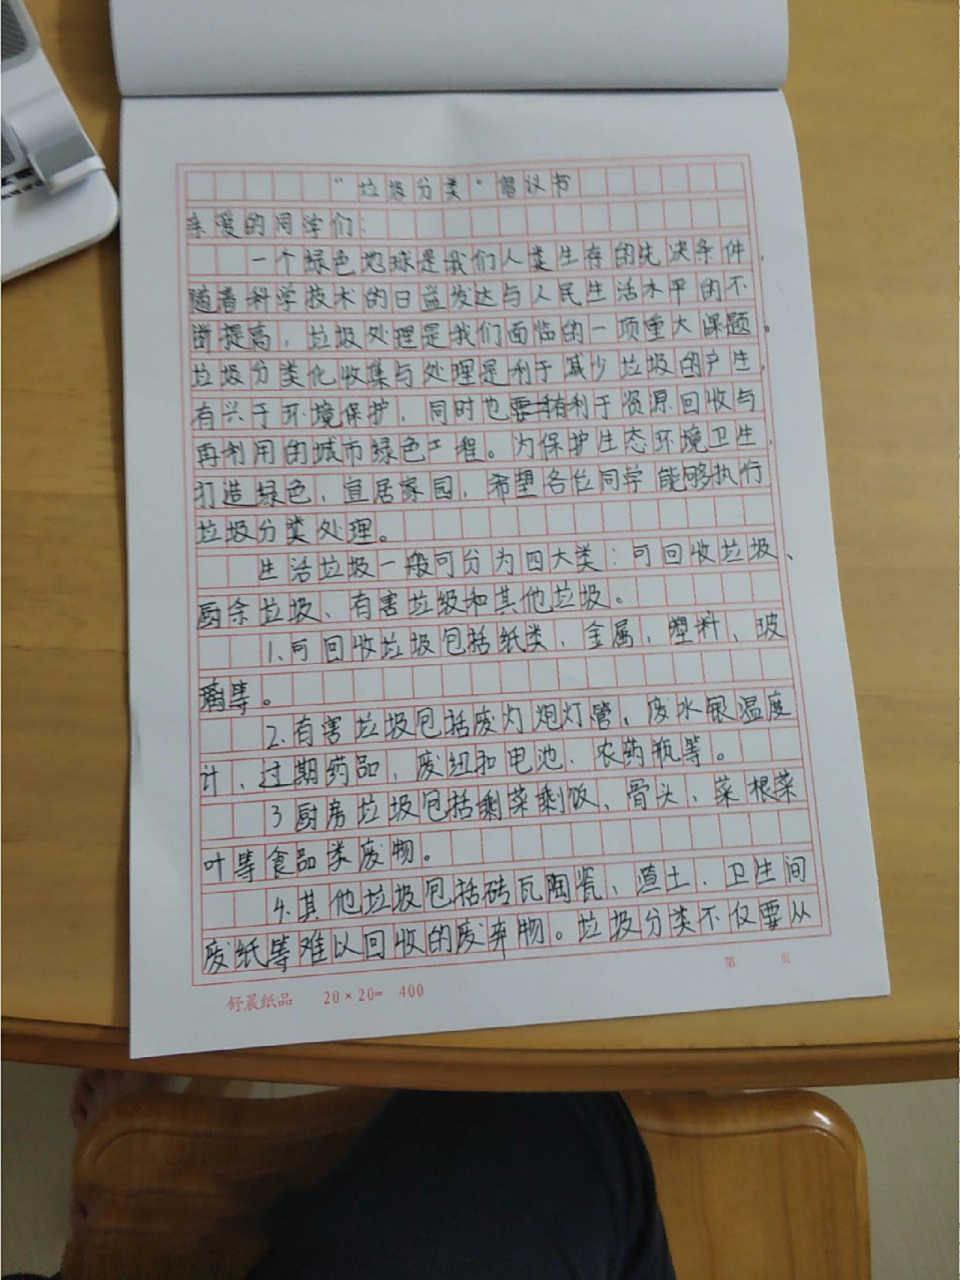 “垃圾分类”倡议书
亲爱的同学们:
一个绿色地球是我们人类生存的先决条件,
随着科学技术的日益发达与人民生活水平的不
断提高,垃圾处理是我们面临的一项重大课题。
垃圾分类化收集与处理是利于减少垃圾的产生,
有兴于环境保护,同时也利于资源回收与
再利用的城市绿色工程。为保护生态环境卫生,
打造绿色、宜居家园,希望各位同学能够执行
垃圾分类处理。
生活垃圾一般可分为四大类:可回收垃圾、
厨余垃圾、有害垃圾和其他垃圾。
1.可回收垃圾包括纸类、金属、塑料、玻
璃等。
2.有害垃圾包括废灯炮灯管、废水银温度
计、过期药品、废纽和电池、农药瓶等。
3厨房垃圾包括剩菜剩饭、骨头、菜根菜
叶等食品类废物。
4.其他垃圾包括砖瓦陶瓷、渣土、卫生间
废纸等难以回收的废弃物。垃圾分类不仅要从
舒晨纸品 20×20=400 第 页